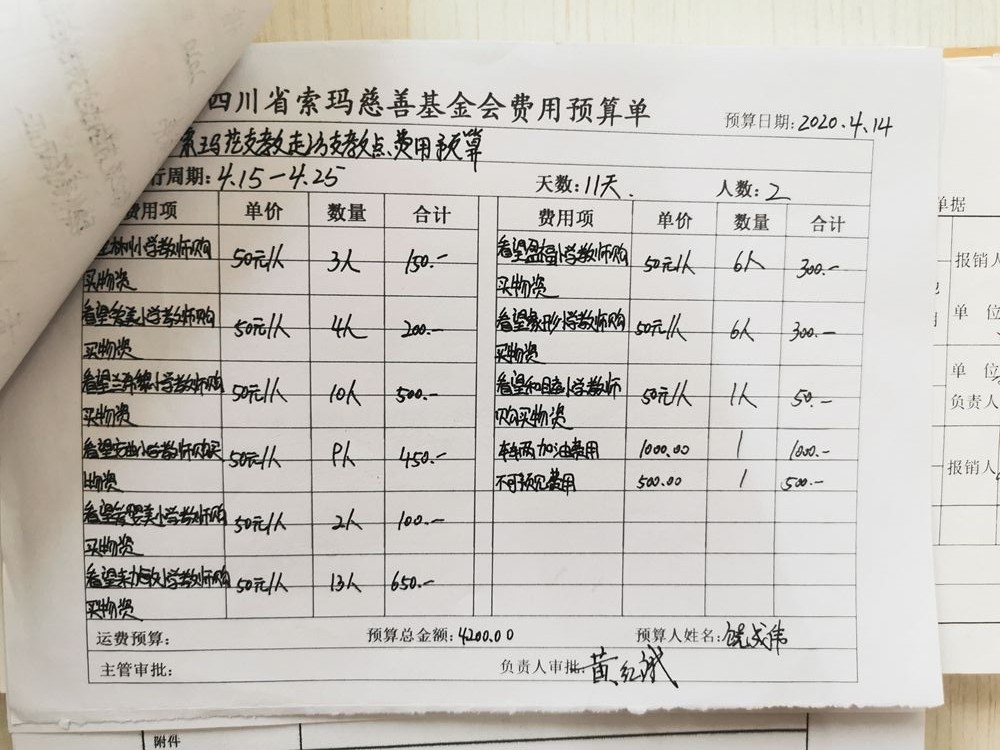 四川省索玛慈善基金会费用预算单
预算日期: 2020.4.14
索玛花支教走访支教点费用预算
行周期: 4.15-4.25 天数: 11天. 人数: 2
费用项 单价 数量 合计 费用项 单价 数量 合计
小学教师购买物资 50元/人 3人 150.-
看望小学教师购买物资 50元/人 4人 200.-
看望小学教师购买物资 50元/人 10人 500.-
看望小学教师购买物资 50元/人 9人 450.-
看望小学教师购买物资 50元/人 2人 100.-
看望小学教师购买物资 50元/人 13人 650.-
看望小学教师购买物资 50元/人 6人 300.-
看望小学教师购买物资 50元/人 6人 300.-
看望小学教师购买物资 50元/人 1人 50.-
车辆加油费用 1000.00 1 1000.-
不可预见费用 500.00 1 500.-
运费预算: 预算总金额: 4200.00 预算人姓名:
主管审批: 负责人审批: 黄红斌
单据
报销人
单 位
单 位
负责人
报销人
附件